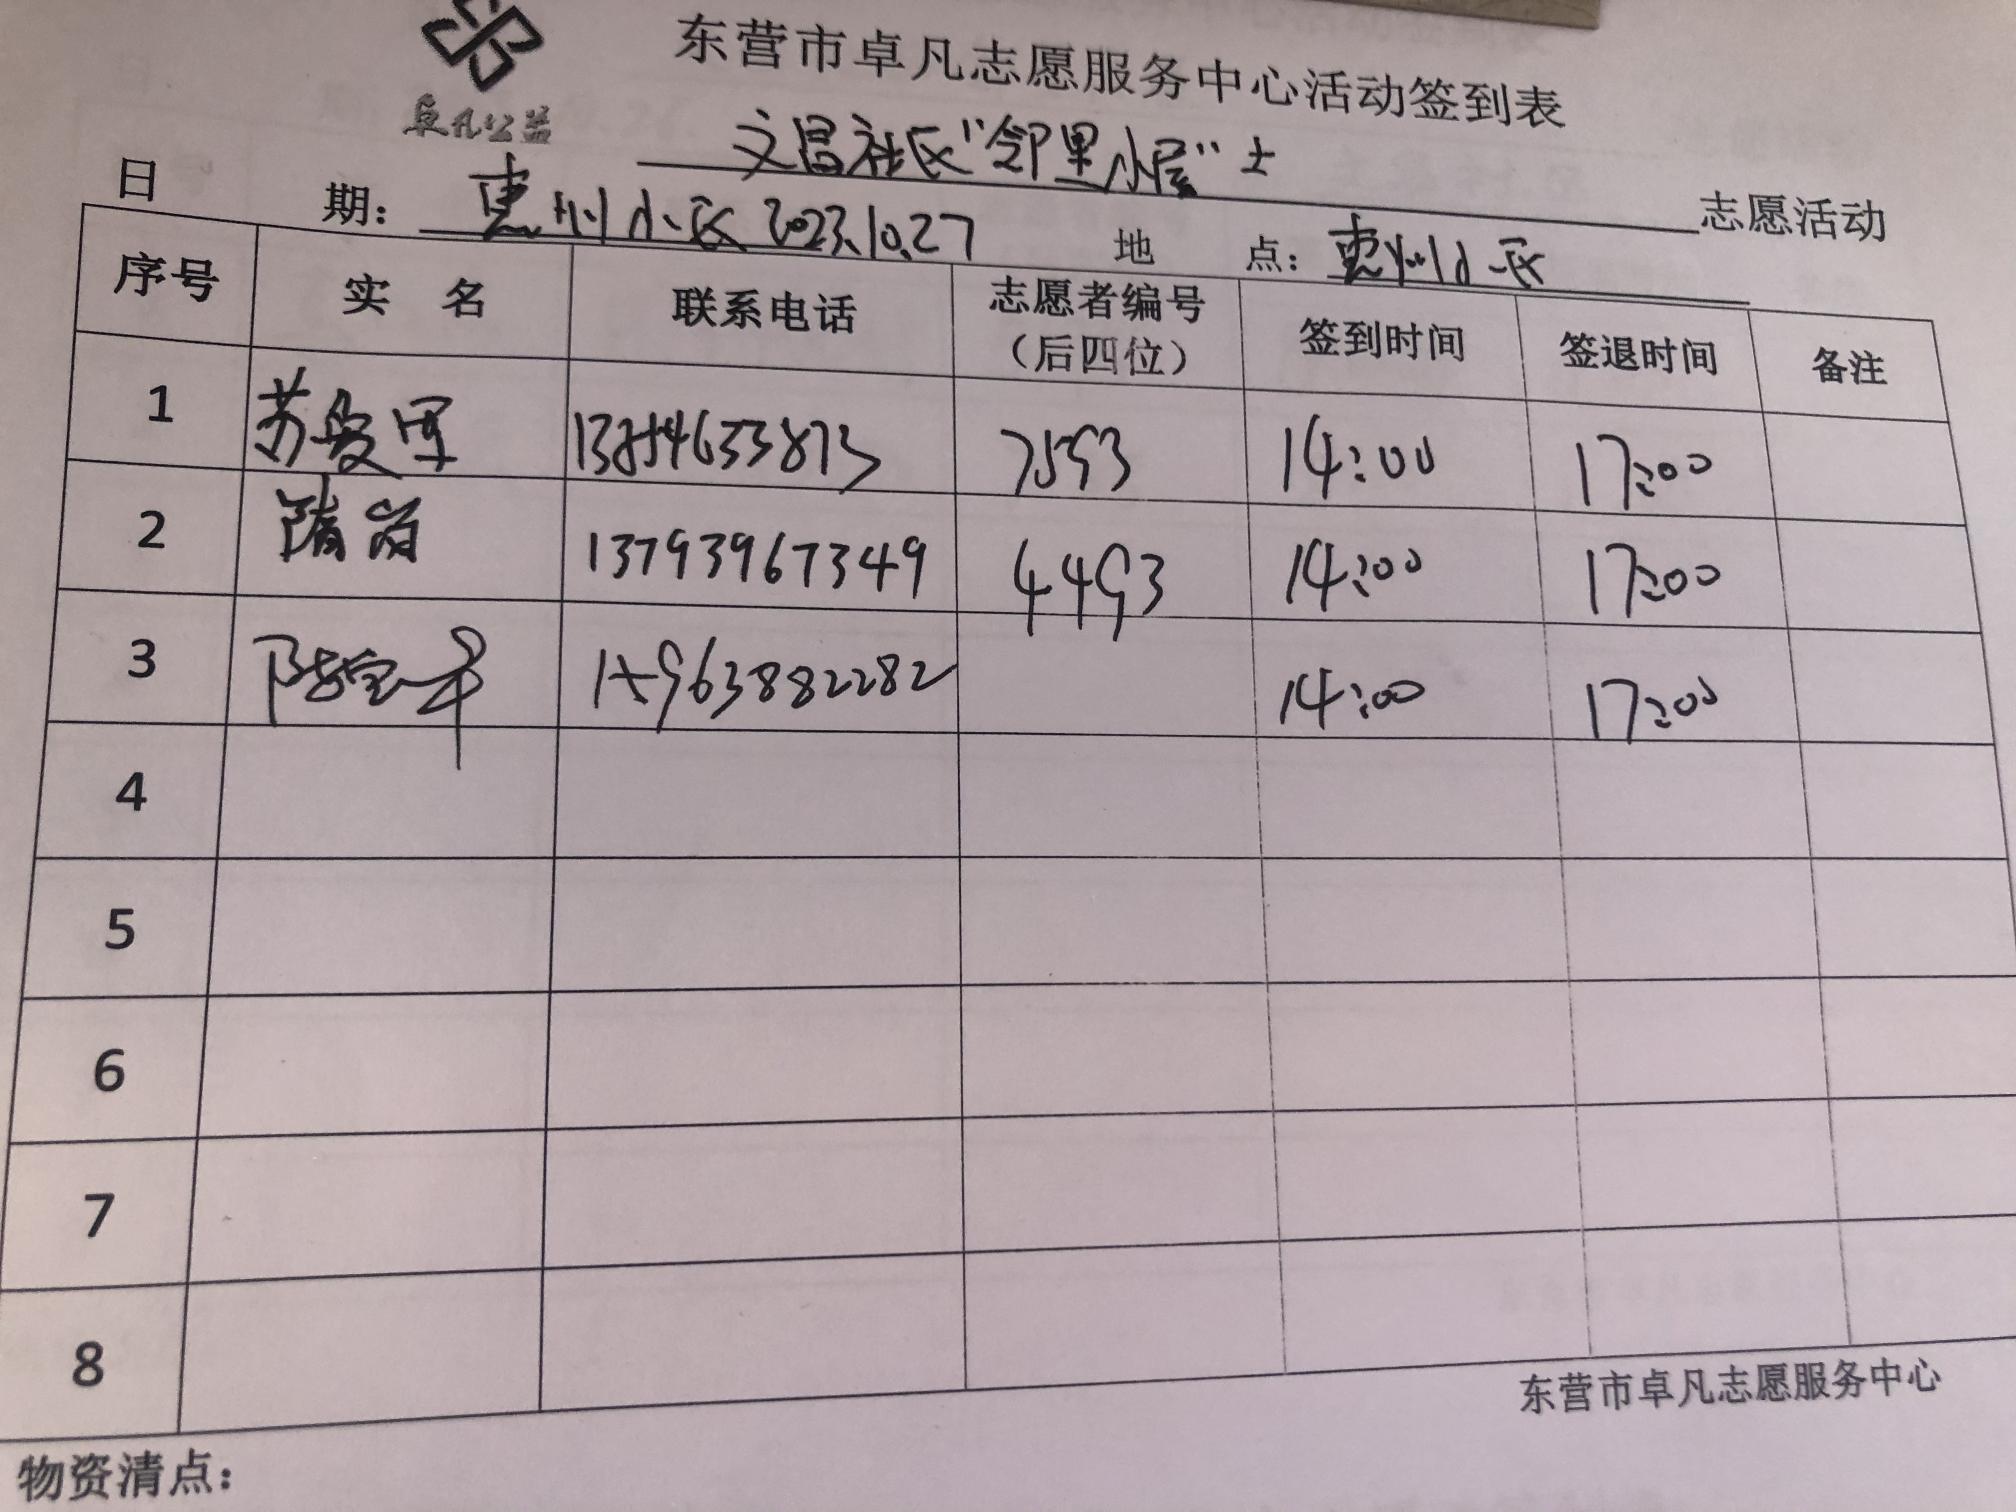 东营市卓凡志愿服务中心活动签到表
卓凡公益
文昌社区"邻里小屋" 志愿活动
日 期: 惠州小区 2023.10.27 地 点: 惠州小区
序号 实 名 联系电话 志愿者编号（后四位） 签到时间 签退时间 备注
1 苏爱军 13854633873 7593 14:00 17:00
2 隋岗 13793967349 4493 14:00 17:00
3 15963882282 14:00 17:00
4
5
6
7
8
东营市卓凡志愿服务中心
物资清点: